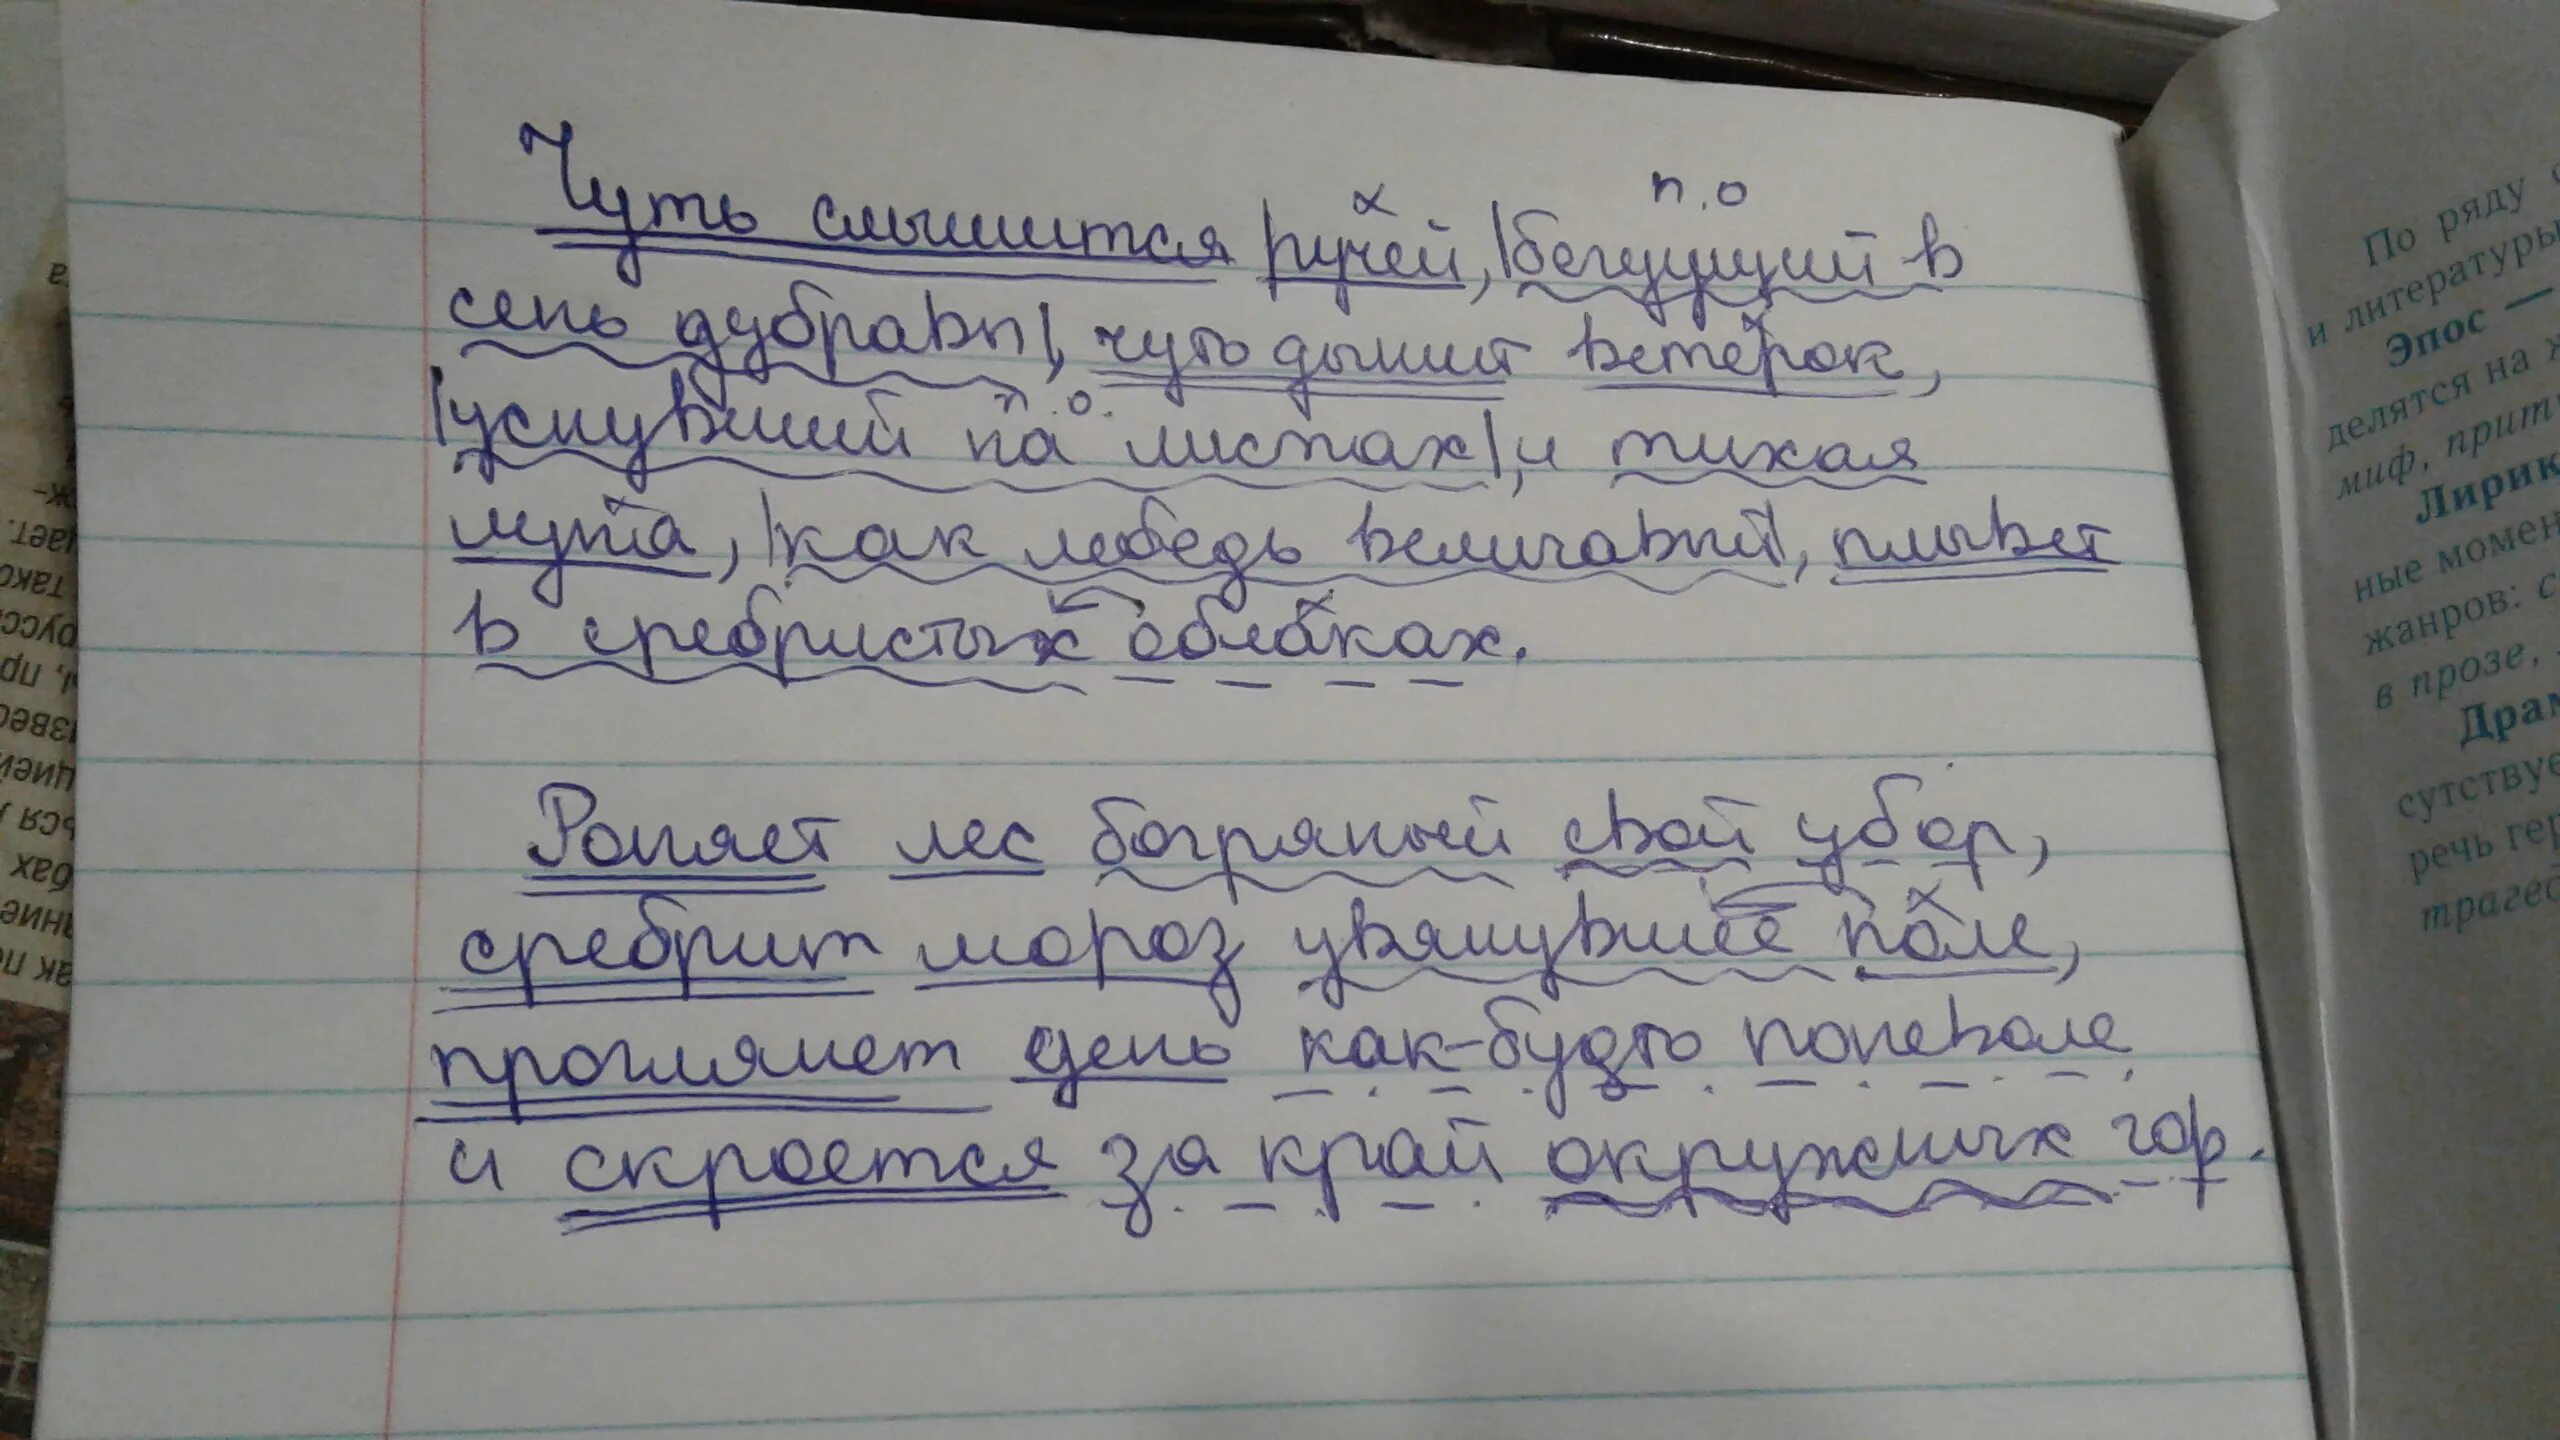 Чуть слышится ручей, бегущий в
п.о
сень дубравы, чуть дышит ветерок,
уснувший на листах, и тихая
п.о.
луна, как лебедь величавый, плывёт
в сребристых облаках.
Роняет лес богряный свой убор,
сребрит мороз увянувшее поле,
проглянет день как-будто поневоле
и скроется за край окружных гор.
По ряду
и литературы
Эпос —
делятся на
миф, притч
Лирик
ные момен
жанров: с
в прозе,
Драм
сутствуе
речь гер
трагед